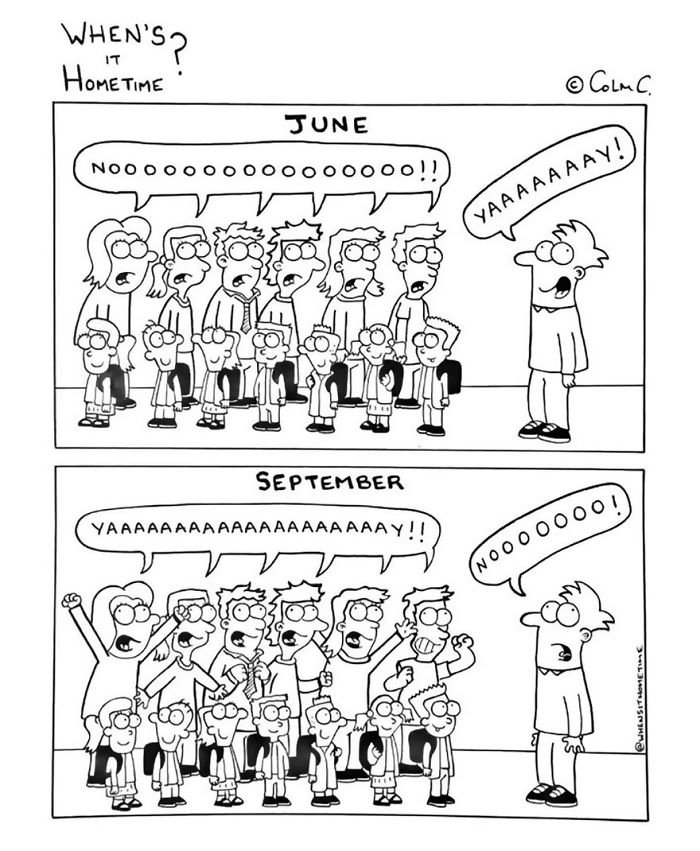 WHEN'S
IT
HOMETIME?
© COLM C.
JUNE
NOOOOOOOOOOOOOOOO!!
YAAAAAAAAY!
SEPTEMBER
YAAAAAAAAAAAAAAAAAAAAY!!
NOOOOOOO!
@WHENSITHOMETIME